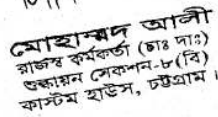 মোহাম্মদ আলী
রাজস্ব কর্মকর্তা (চাঃ দাঃ)
শুল্কায়ন সেকশন-৮(বি)
কাস্টম হাউস, চট্টগ্রাম।